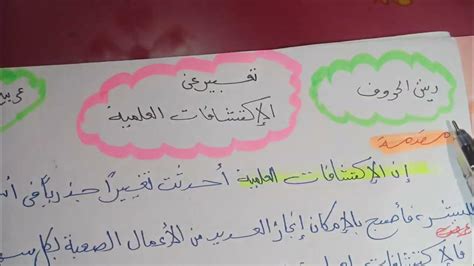 ريش الحروف
تعبير عن
الإكتشافات العلمية
عربية
مقدمة
إن الإكتشافات العلمية أحدثت تغييرًا جذريًا في
للبشر، فأصبح بالإمكان إنجاز العديد من الأعمال الصعبة بكل
عرض
فالإكتشافات